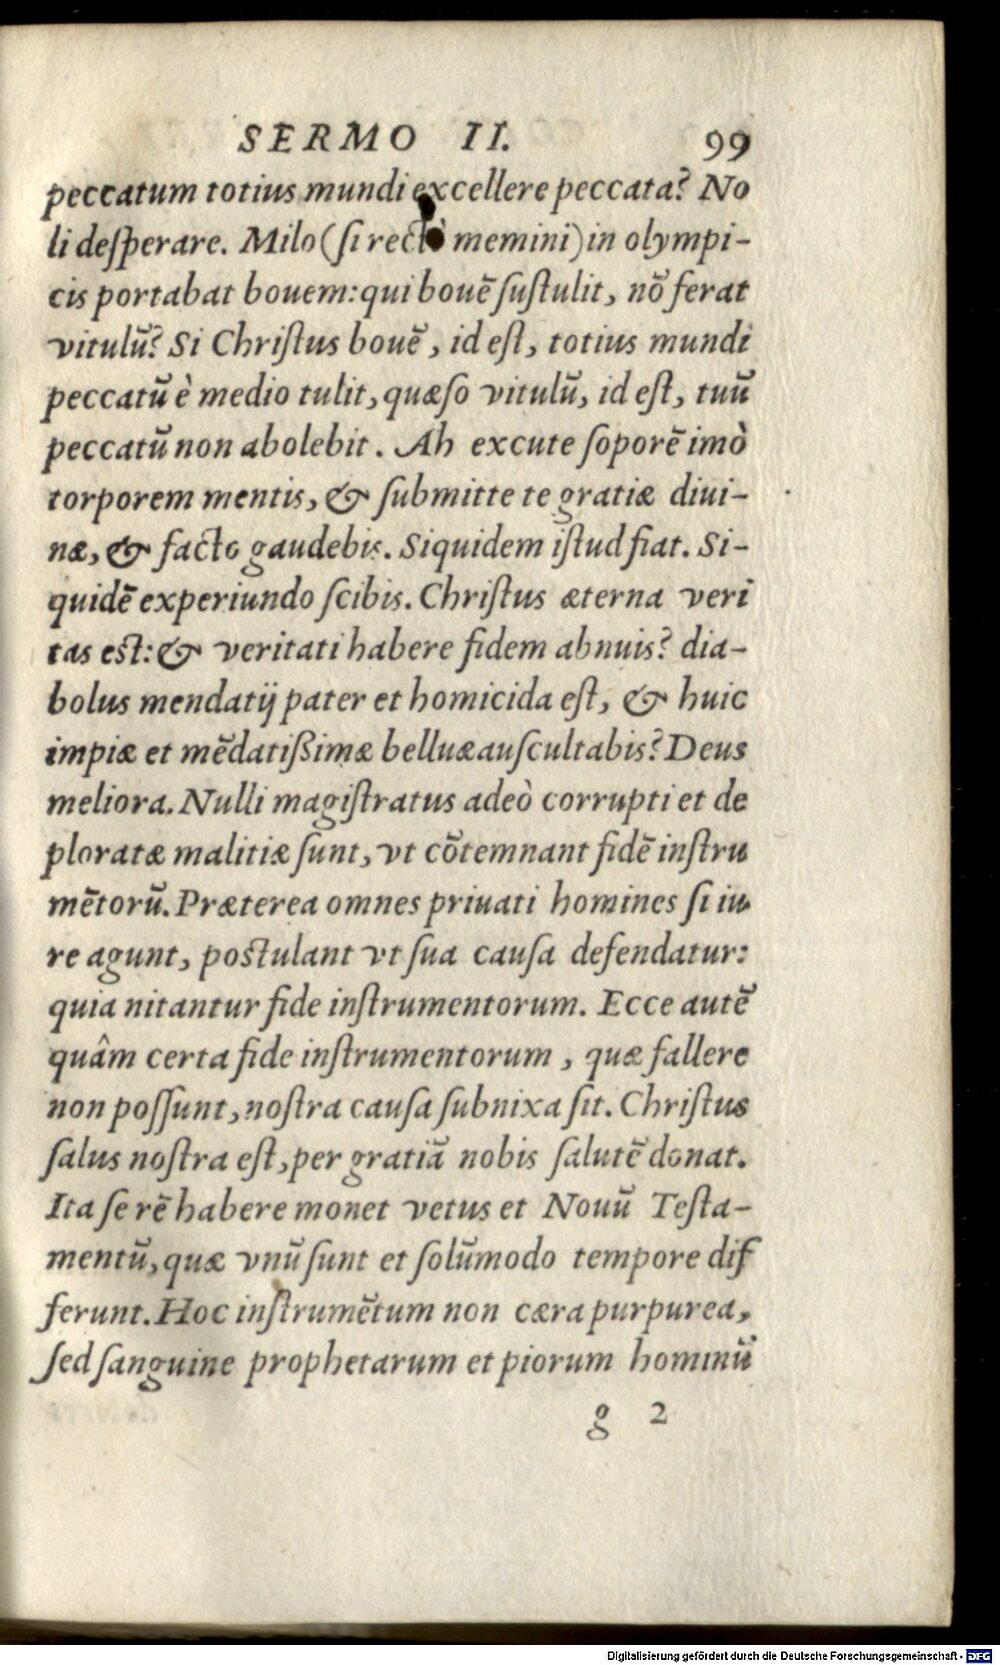 SERMO II. 99
peccatum totius mundi excellere peccata? No
li desperare. Milo (si rectè memini) in olympi-
cis portabat bouem: qui bouē sustulit, nō ferat
vitulū? Si Christus bouē, id est, totius mundi
peccatū è medio tulit, quæso vitulū, id est, tuū
peccatū non abolebit. Ah excute soporē imò
torporem mentis, & submitte te gratiæ diui-
næ, & facto gaudebis. Siquidem istud fiat. Si-
quidē experiundo scibis. Christus æterna veri
tas est: & veritati habere fidem abnuis? dia-
bolus mendatij pater et homicida est, & huic
impiæ et mēdatißimæ belluæ auscultabis? Deus
meliora. Nulli magistratus adeò corrupti et de
ploratæ malitiæ sunt, vt cōtemnant fidē instru
mētorū. Præterea omnes priuati homines si iu-
re agunt, postulant vt sua causa defendatur:
quia nitantur fide instrumentorum. Ecce autē
quâm certa fide instrumentorum, quæ fallere
non possunt, nostra causa subnixa sit. Christus
salus nostra est, per gratiā nobis salutē donat.
Ita se rē habere monet vetus et Nouū Testa-
mentū, quæ vnū sunt et solūmodo tempore dif
ferunt. Hoc instrumētum non cæra purpurea,
sed sanguine prophetarum et piorum hominū
g 2
Digitalisierung gefördert durch die Deutsche Forschungsgemeinschaft - DFG